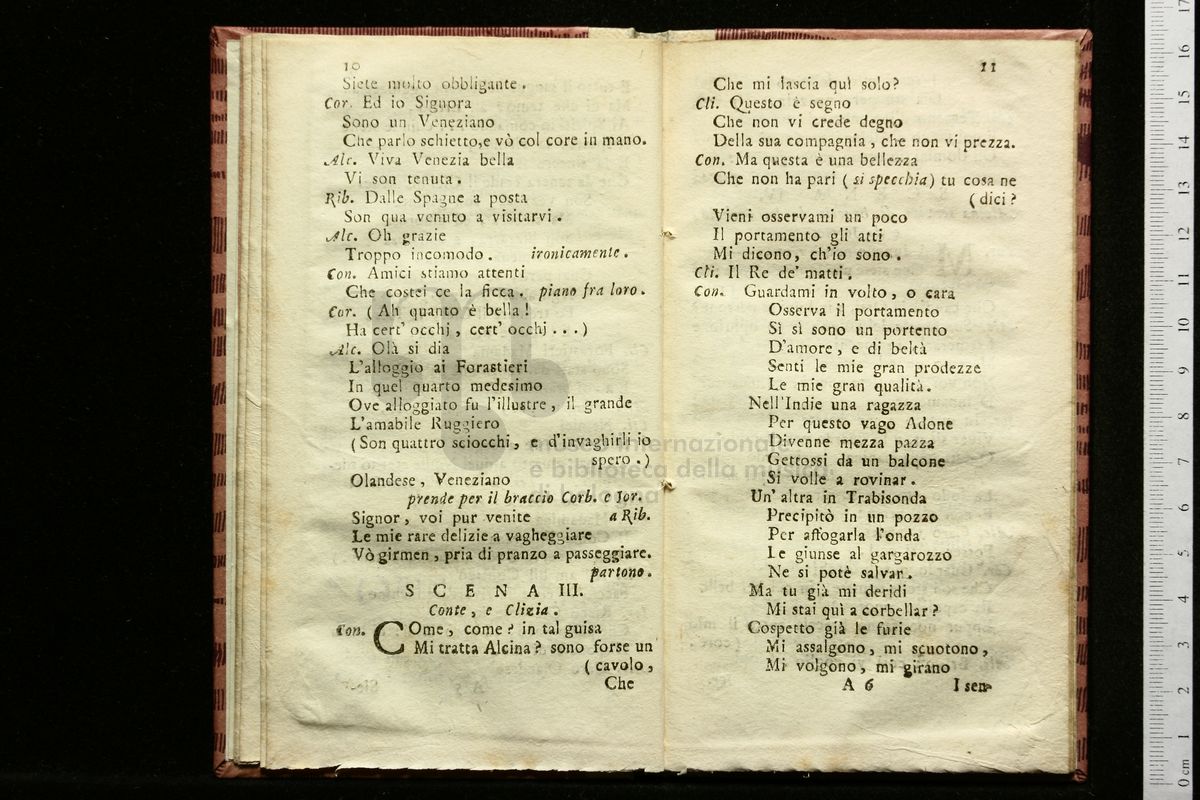 10
Siete molto obbligante.
Cor. Ed io Signora
Sono un Veneziano
Che parlo schietto,e vò col core in mano.
Alc. Viva Venezia bella
Vi son tenuta.
Rib. Dalle Spagne a posta
Son qua venuto a visitarvi.
Alc. Oh grazie
Troppo incomodo. ironicamente.
Con. Amici stiamo attenti
Che costei ce la ficca. piano fra loro.
Cor. (Ah quanto è bella!
Ha cert' occhj, cert' occhj ...)
Alc. Olà si dia
L'alloggio ai Forastieri
In quel quarto medesimo
Ove alloggiato fu l'illustre, il grande
L'amabile Ruggiero
(Son quattro sciocchi, e d'invaghirli io
spero.)
Olandese, Veneziano
prende per il braccio Corb. e Jor.
Signor, voi pur venite a Rib.
Le mie rare delizie a vagheggiare
Vò girmen, pria di pranzo a passeggiare.
partono.
SCENA III.
Conte, e Clizia.
Con. COme, come? in tal guisa
Mi tratta Alcina? sono forse un
(cavolo,
Che
11
Che mi lascia quì solo?
Cli. Questo è segno
Che non vi crede degno
Della sua compagnia, che non vi prezza.
Con. Ma questa è una bellezza
Che non ha pari (si specchia) tu cosa ne
(dici?
Vieni osservami un poco
Il portamento gli atti
Mi dicono, ch'io sono.
Cli. Il Re de' matti.
Con. Guardami in volto, o cara
Osserva il portamento
Sì sì sono un portento
D'amore, e di beltà
Senti le mie gran prodezze
Le mie gran qualità.
Nell'Indie una ragazza
Per questo vago Adone
Divenne mezza pazza
Gettossi da un balcone
Si volle a rovinar.
Un' altra in Trabisonda
Precipitò in un pozzo
Per affogarla l'onda
Le giunse al gargarozzo
Ne si potè salvar.
Ma tu già mi deridi
Mi stai quì a corbellar?
Cospetto già le furie
Mi assalgono, mi scuotono,
Mi volgono, mi girano
A 6 I sen-
museo internazionale
e biblioteca della musica
di bologna
0 cm 1 2 3 4 5 6 7 8 9 10 11 12 13 14 15 16 17